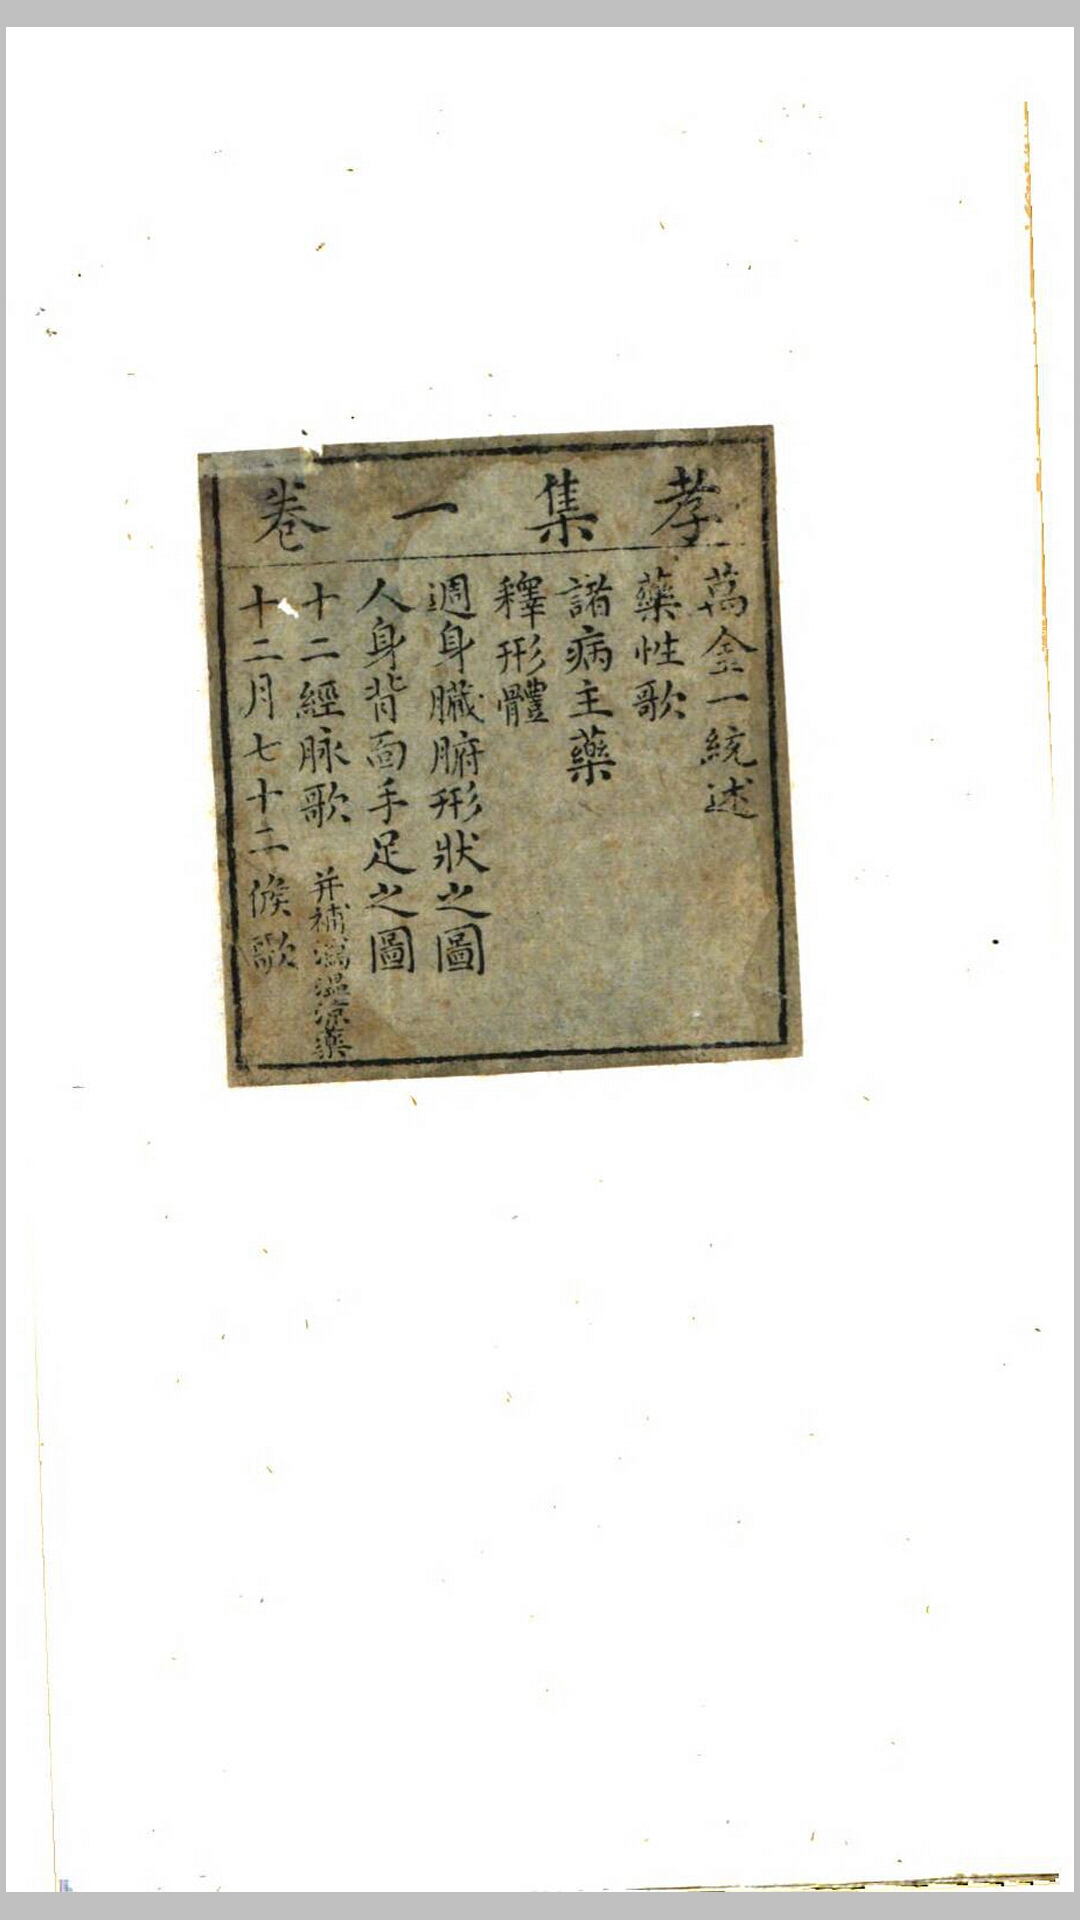 孝集一卷
萬金一統述
藥性歌
諸病主藥
釋形體
週身臟腑形狀之圖
人身背面手足之圖
十二經脉歌 并補瀉溫涼藥
十二月七十二候歌